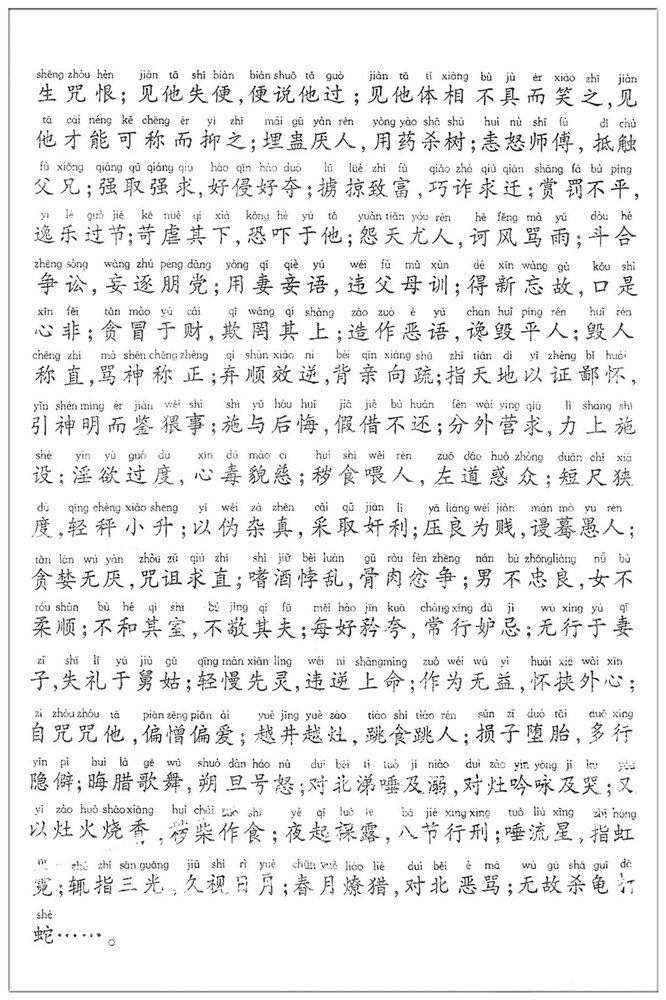 shēng zhòu hèn jiàn tā shī biàn biàn shuō tā guò jiàn tā tǐ xiàng bù jù ér xiào zhī jiàn
生咒恨；见他失便，便说他过；见他体相不具而笑之，见
tā cái néng kě chēng ér yì zhī mái gǔ yàn rén yòng yào shā shù huì nù shī fù dǐ chù
他才能可称而抑之；埋蛊厌人，用药杀树；恚怒师傅，抵触
fù xiōng qiáng qǔ qiáng qiú hào qīn hào duó lǔ lüè zhì fù qiǎo zhà qiú qiān shǎng fá bù píng
父兄；强取强求，好侵好夺；掳掠致富，巧诈求迁；赏罚不平，
yì lè guò jié kē nüè qí xià kǒng hè yú tā yuàn tiān yóu rén hē fēng mà yǔ dòu hé
逸乐过节；苛虐其下，恐吓于他；怨天尤人，诃风骂雨；斗合
zhēng sòng wàng zhú péng dǎng yòng qī qiè yǔ wéi fù mǔ xùn dé xīn wàng gù kǒu shì
争讼，妄逐朋党；用妻妾语，违父母训；得新忘故，口是
xīn fēi tān mào yú cái qī wǎng qí shàng zào zuò è yǔ chán huǐ píng rén huǐ rén
心非；贪冒于财，欺罔其上；造作恶语，谗毁平人；毁人
chēng zhí mà shén chēng zhèng qì shùn xiào nì bèi qīn xiàng shū zhǐ tiān dì yǐ zhèng bǐ huái
称直，骂神称正；弃顺效逆，背亲向疏；指天地以证鄙怀，
yǐn shén míng ér jiàn wěi shì shī yǔ hòu huǐ jiǎ jiè bù huán fèn wài yíng qiú lì shàng shī
引神明而鉴猥事；施与后悔，假借不还；分外营求，力上施
shè yín yù guò dù xīn dú mào cí huì shí wèi rén zuǒ dào huò zhòng duǎn chǐ xiá
设；淫欲过度，心毒貌慈；秽食喂人，左道惑众；短尺狭
dù qīng chèng xiǎo shēng yǐ wěi zá zhēn cǎi qǔ jiān lì yā liáng wéi jiàn mán mò yú rén
度，轻秤小升；以伪杂真，采取奸利；压良为贱，谩蓦愚人；
tān lán wú yàn zhòu zǔ qiú zhí shì jiǔ bèi luàn gǔ ròu fèn zhēng nán bù zhōng liáng nǚ bù
贪婪无厌，咒诅求直；嗜酒悖乱，骨肉忿争；男不忠良，女不
róu shùn bù hé qí shì bú jìng qí fū měi hào jīn kuā cháng xíng dù jì wú xíng yú qī
柔顺；不和其室，不敬其夫；每好矜夸，常行妒忌；无行于妻
zǐ shī lǐ yú jiù gū qīng màn xiān líng wéi nì shàng mìng zuò wéi wú yì huái xié wài xīn
子，失礼于舅姑；轻慢先灵，违逆上命；作为无益，怀挟外心；
zì zhòu zhòu tā piān zēng piān ài yuè jǐng yuè zào tiào shí tiào rén sǔn zǐ duò tāi duō xíng
自咒咒他，偏憎偏爱；越井越灶，跳食跳人；损子堕胎，多行
yǐn pì huì là gē wǔ shuò dàn háo nù duì běi tì tuò jí niào duì zào yín yǒng jí kū yòu
隐僻；晦腊歌舞，朔旦号怒；对北涕唾及溺，对灶吟咏及哭；又
yǐ zào huǒ shāo xiāng huì chái zuò shí yè qǐ luǒ lù bā jié xíng xíng tuò liú xīng zhǐ hóng
以灶火烧香，秽柴作食；夜起裸露，八节行刑；唾流星，指虹
ní zhé zhǐ sān guāng jiǔ shì rì yuè chūn yuè liáo liè duì běi è mà wú gù shā guī dǎ
霓；辄指三光，久视日月；春月燎猎，对北恶骂；无故杀龟打
shé
蛇……。